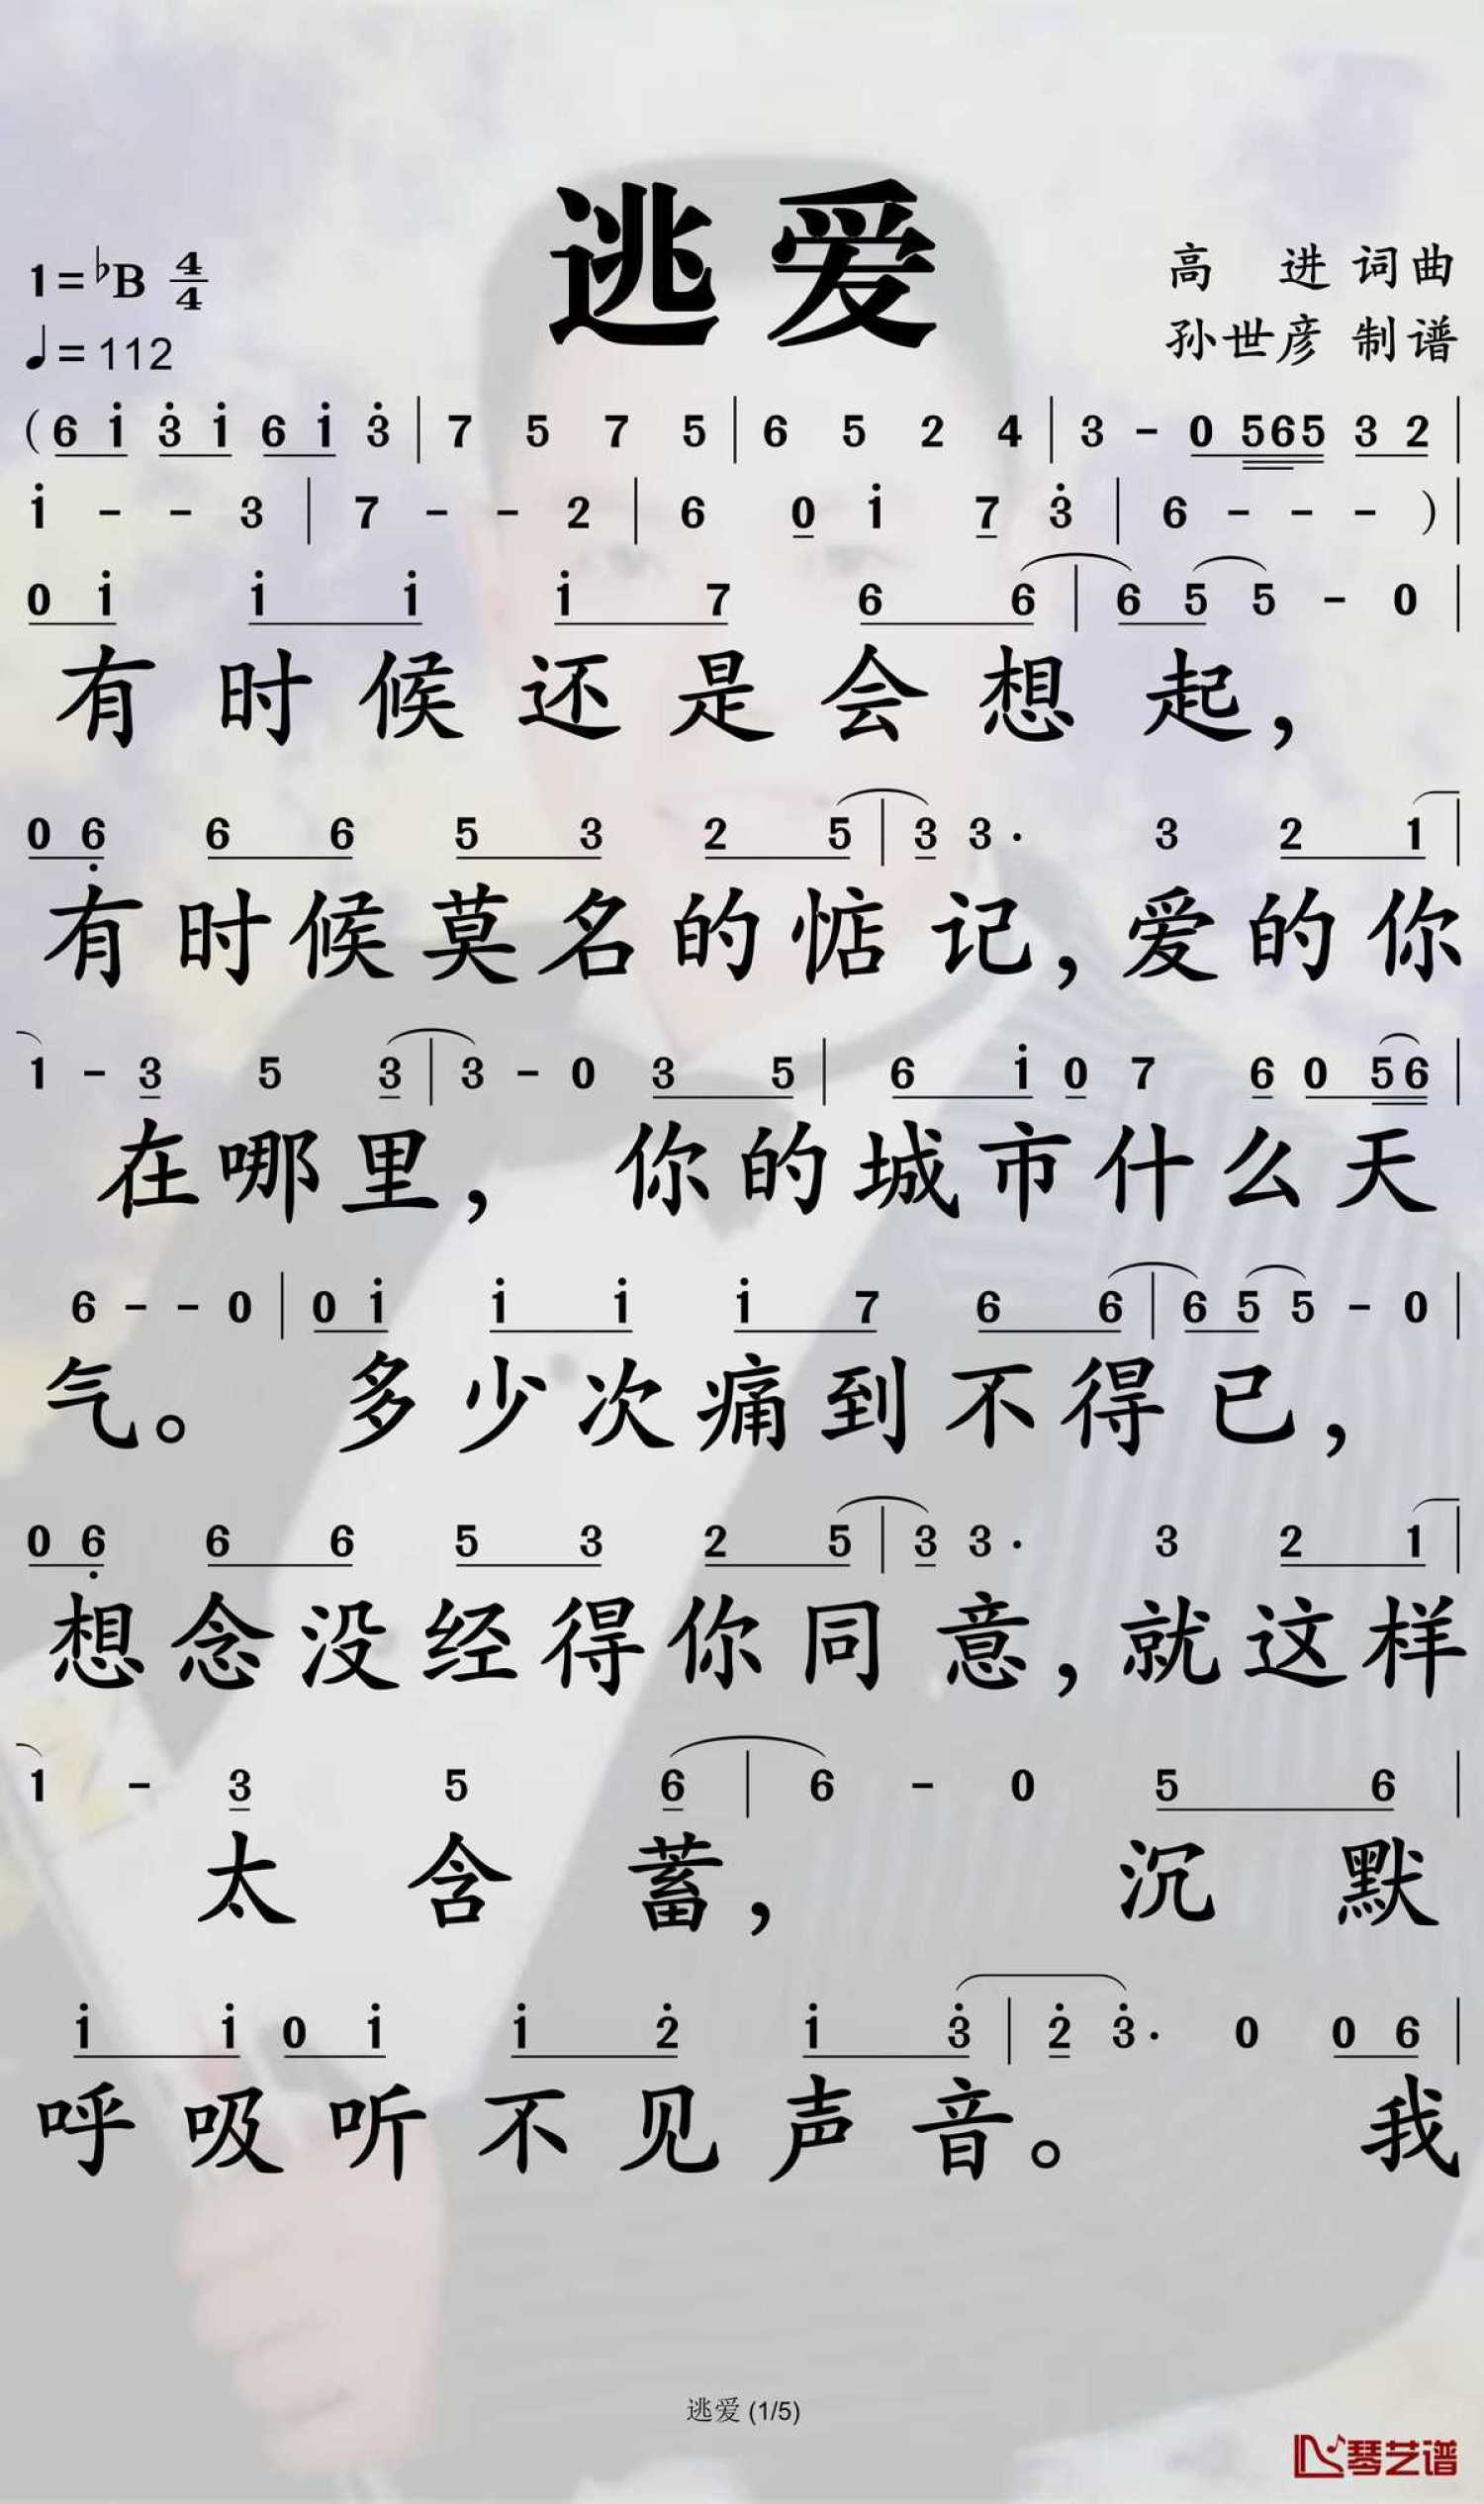 逃爱
1=♭B 4/4
♩=112
高 进 词曲
孙世彦 制谱
(6 i̇ 3̇ i̇ 6 i̇ 3̇ | 7 5 7 5 | 6 5 2 4 | 3 - 0 565 3 2 |
i̇ - - 3 | 7 - - 2 | 6 0 i̇ 7 3̇ | 6 - - - ) |
0 i̇ i̇ i̇ i̇ 7 6 6 | 6 5 5 - 0 |
有时候还是会想起，
0 6̣ 6 6 5 3 2 5 | 3 3· 3 2 1 |
有时候莫名的惦记，爱的你
1 - 3 5 3 | 3 - 0 3 5 | 6 i̇ 0 7 6 0 56 |
在哪里， 你的城市什么天
6 - - 0 | 0 i̇ i̇ i̇ i̇ 7 6 6 | 6 5 5 - 0 |
气。 多少次痛到不得已，
0 6̣ 6 6 5 3 2 5 | 3 3· 3 2 1 |
想念没经得你同意，就这样
1 - 3 5 6 | 6 - 0 5 6 |
太含蓄， 沉默
i̇ i̇ 0 i̇ i̇ 2̇ i̇ 3̇ | 2̇ 3̇· 0 0 6 |
呼吸听不见声音。 我
逃爱 (1/5)
琴艺谱